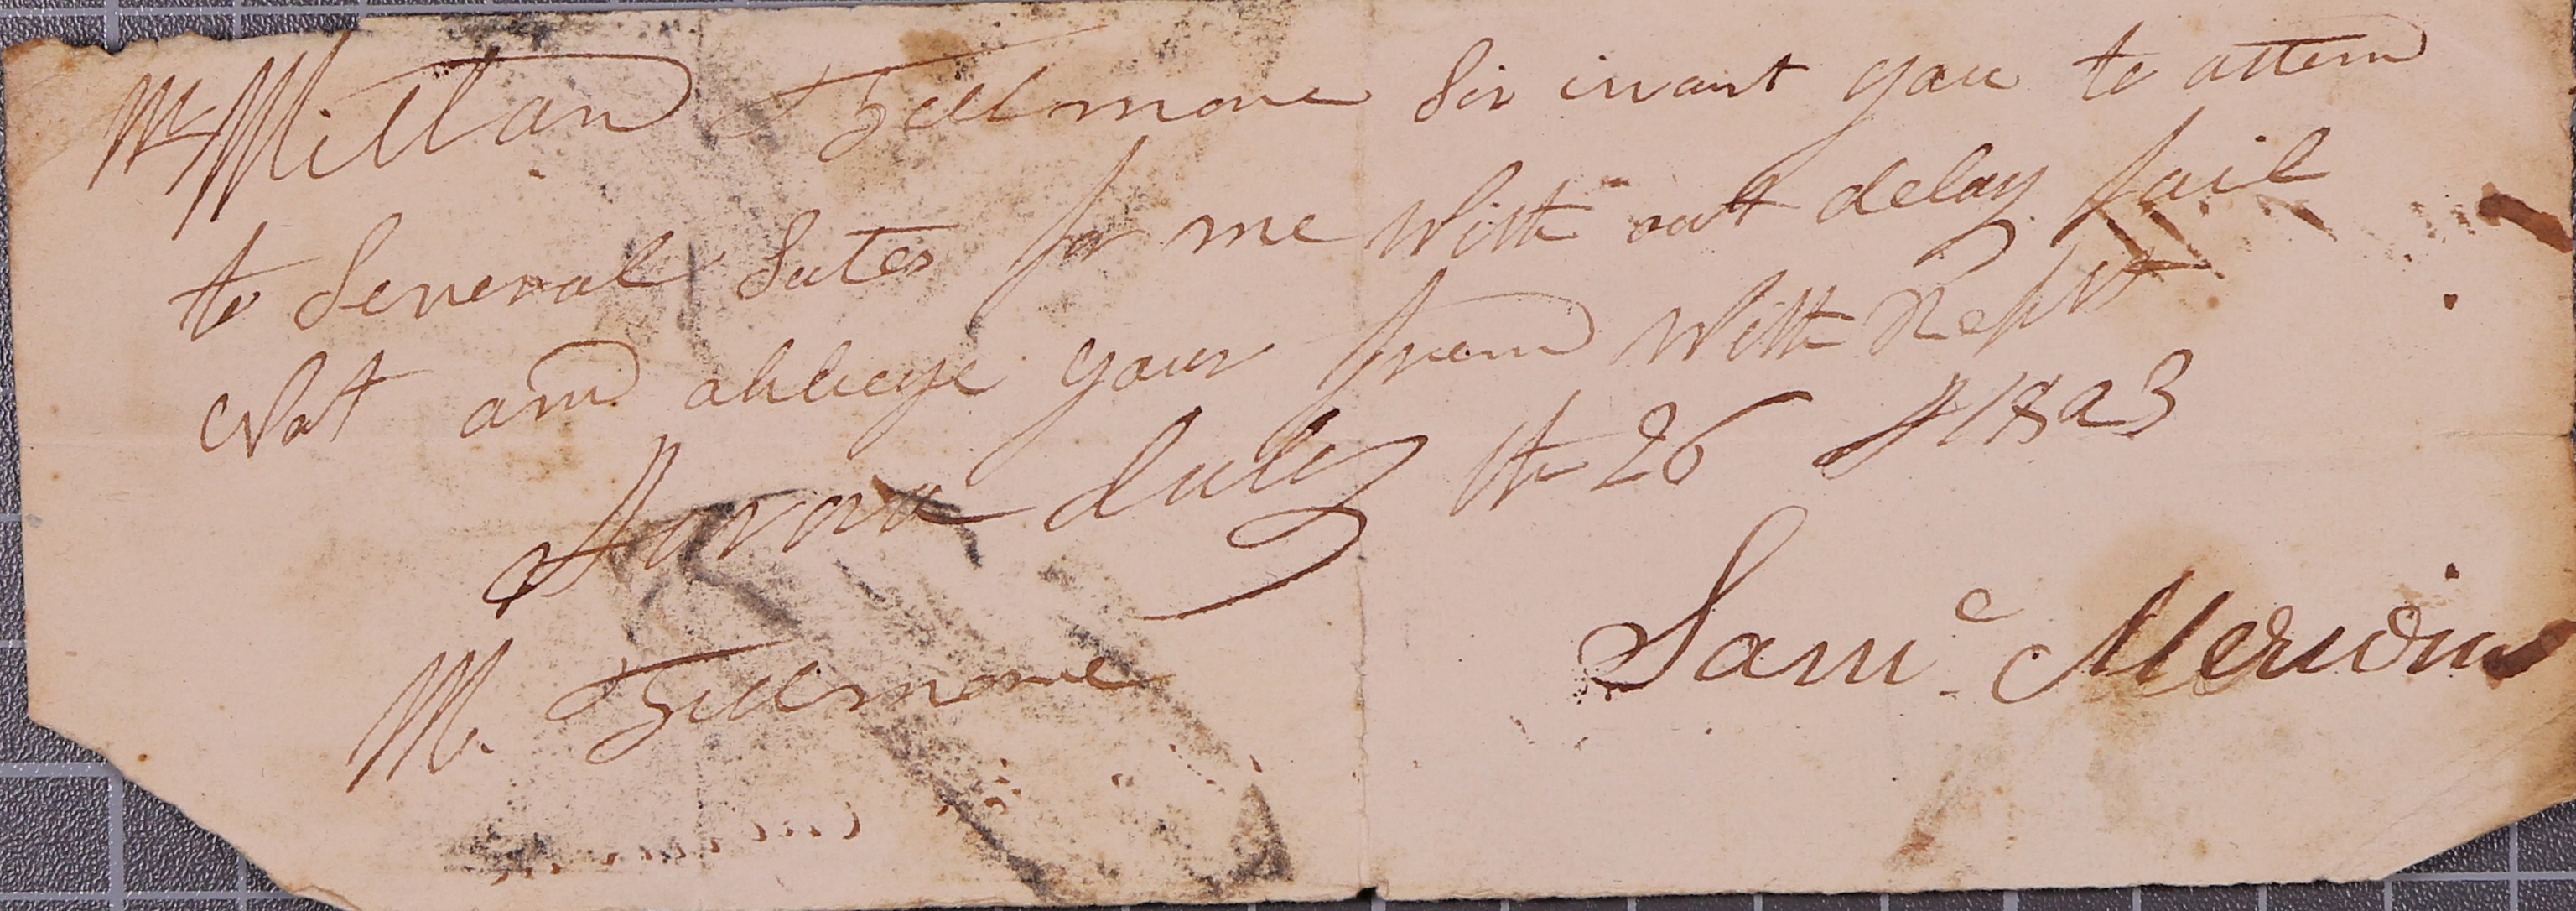 Mr Millard Fillmore Sir i want you to attend
to several sutes for me With out delay fail
Not and abliege your frend With Respt
Aurora July the 26 AD 1823
Saml Meridith
M. Fillmore